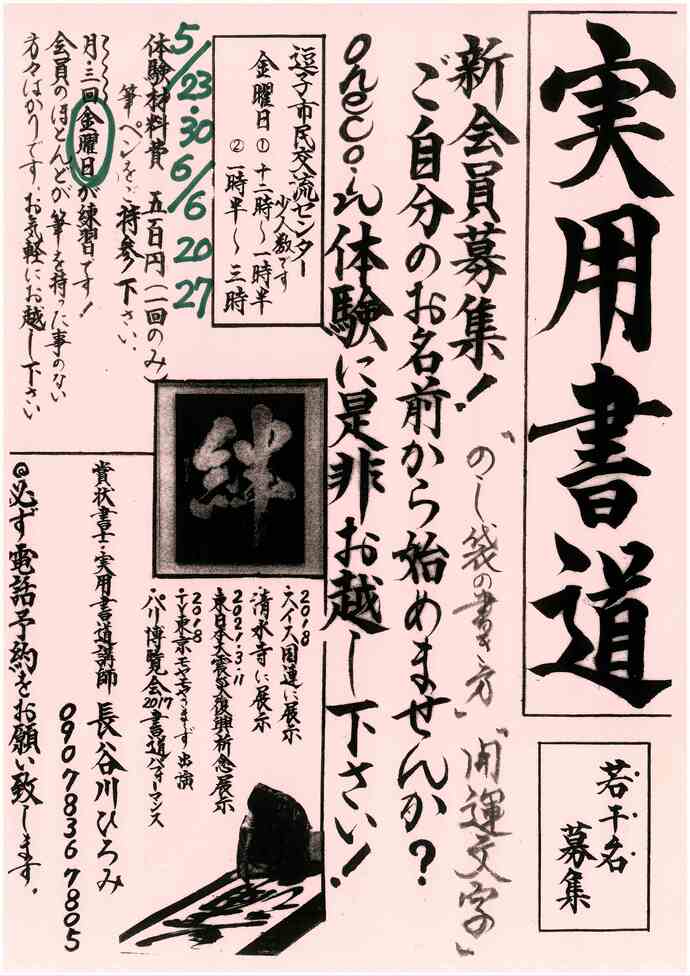 実用書道
若干名
募集
新会員募集!
「のし袋の書き方」「開運文字」
ご自分のお名前から始めませんか?
oneco・in体験に是非お越し下さい!
逗子市民交流センター
少人数です
金曜日 ① 十二時〜一時半
② 一時半〜三時
5/23・30 6/6 20 27
体験材料費 五百円(一回のみ)
筆ペンをご持参下さい。
月・三回金曜日が練習です!
会員のほとんどが筆を持った事のない
方々ばかりです。お気軽にお越し下さい
絆
2018
・スイス国連に展示
清水寺に展示
2021.3.11
東日本大震災復興祈念展示
2018
・TV東京モヤモヤさまぁず出演
・パリ博覧会2017書道パフォーマンス
賞状書士・実用書道講師 長谷川ひろみ
09078367805
◎必ず電話予約をお願い致します。